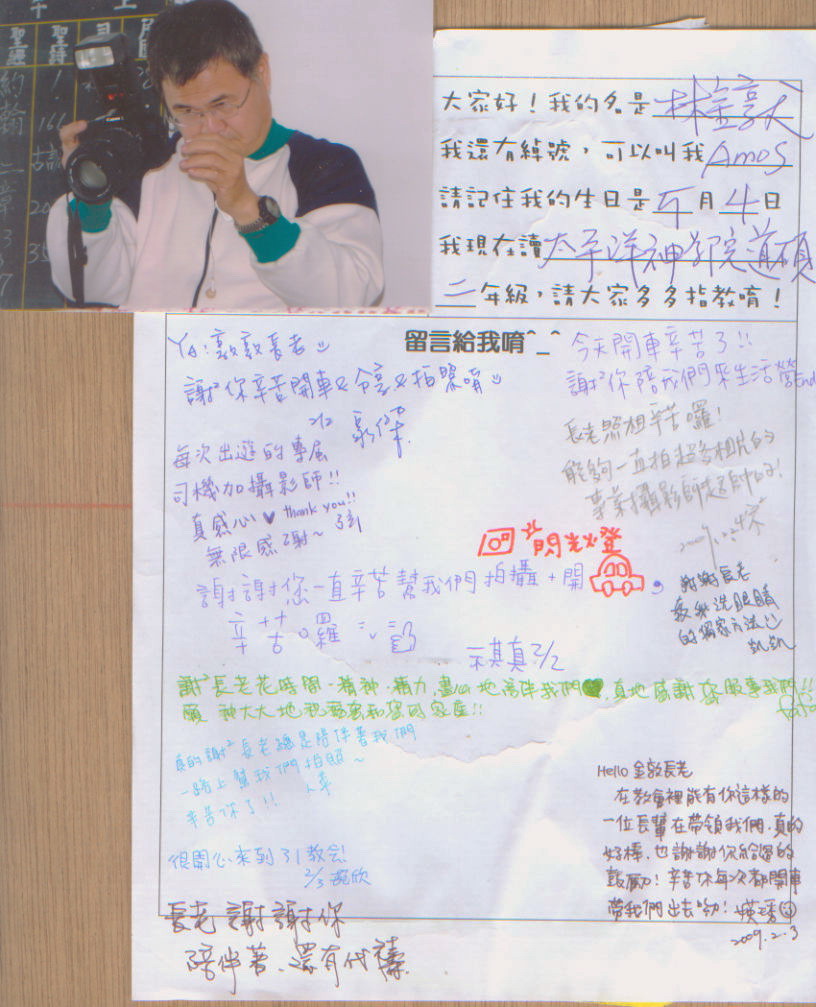 聖經
聖詩
約翰
二章
大家好！我的名是 林金敦
我還有綽號，可以叫我 Amos
請記住我的生日是 5 月 4 日
我現在讀 太平洋神學院道碩
二 年級，請大家多多指教唷！
留言給我唷^_^
今天開車辛苦了!!
謝²你陪我們來生活營
Ya:敦敦長老
謝²你辛苦開車&分享&拍照唷
2/2
長老照相辛苦囉！
能夠一直拍超多相片的
專業攝影師超帥的！
每次出遊的專屬
司機加攝影師!!
真感心♥ thank you!!
無限感謝~
閃光燈
謝謝您一直辛苦幫我們拍攝+開
辛苦囉
祺真 2/2
謝謝長老
教我洗眼睛
的獨家方法
凱凱
謝²長老花時間、精神、精力，盡心地陪伴我們♥，真地感謝您服事我們!!
願 神大大地祝福您和您的家庭!!
真的謝²長老總是陪伴著我們
一路上幫我們拍照~
辛苦你了!!
很開心來到31教会!
2/3 琬欣
Hello 金敦長老
在教會裡能有你這樣的
一位長輩在帶領我們，真的
好棒，也謝謝你給過的
鼓勵！辛苦你每次都開車
帶我們出去喲！
2009.2.3
長老謝謝你
陪伴著、還有代禱